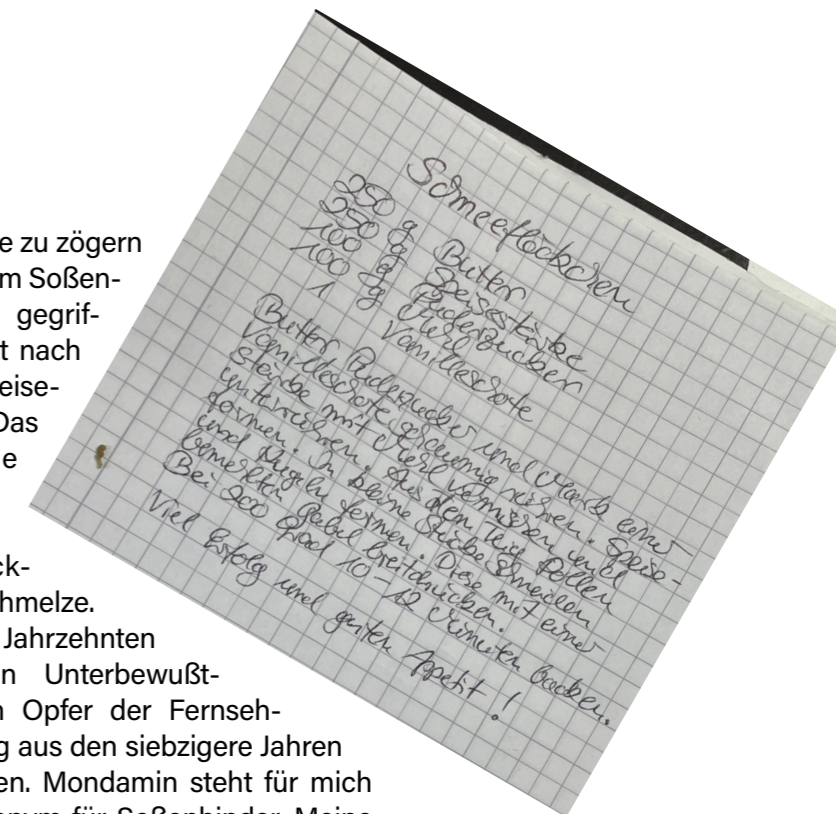 e zu zögern
m Soßen-
gegrif-
t nach
eise-
Das
e
ck-
hmelze.
Jahrzehnten
n Unterbewußt-
n Opfer der Fernseh-
g aus den siebzigere Jahren
en. Mondamin steht für mich
onym für Soßenbinder. Meine
Schneeflöckchen
250 g Butter
250 g Speisestärke
100 g Puderzucker
100 g Mehl
1 Vanilleschote
Butter Puderzucker und Mark einer
Vanilleschote schaumig rühren. Speise-
stärke mit Mehl vermischen und
unterrühren. Aus dem Teig Rollen
formen. In kleine Stücke schneiden
und Kugeln formen. Diese mit einer
bemehlten Gabel breitdrücken.
Bei 200 Grad 10-12 Minuten backen.
Viel Erfolg und guten Appetit!